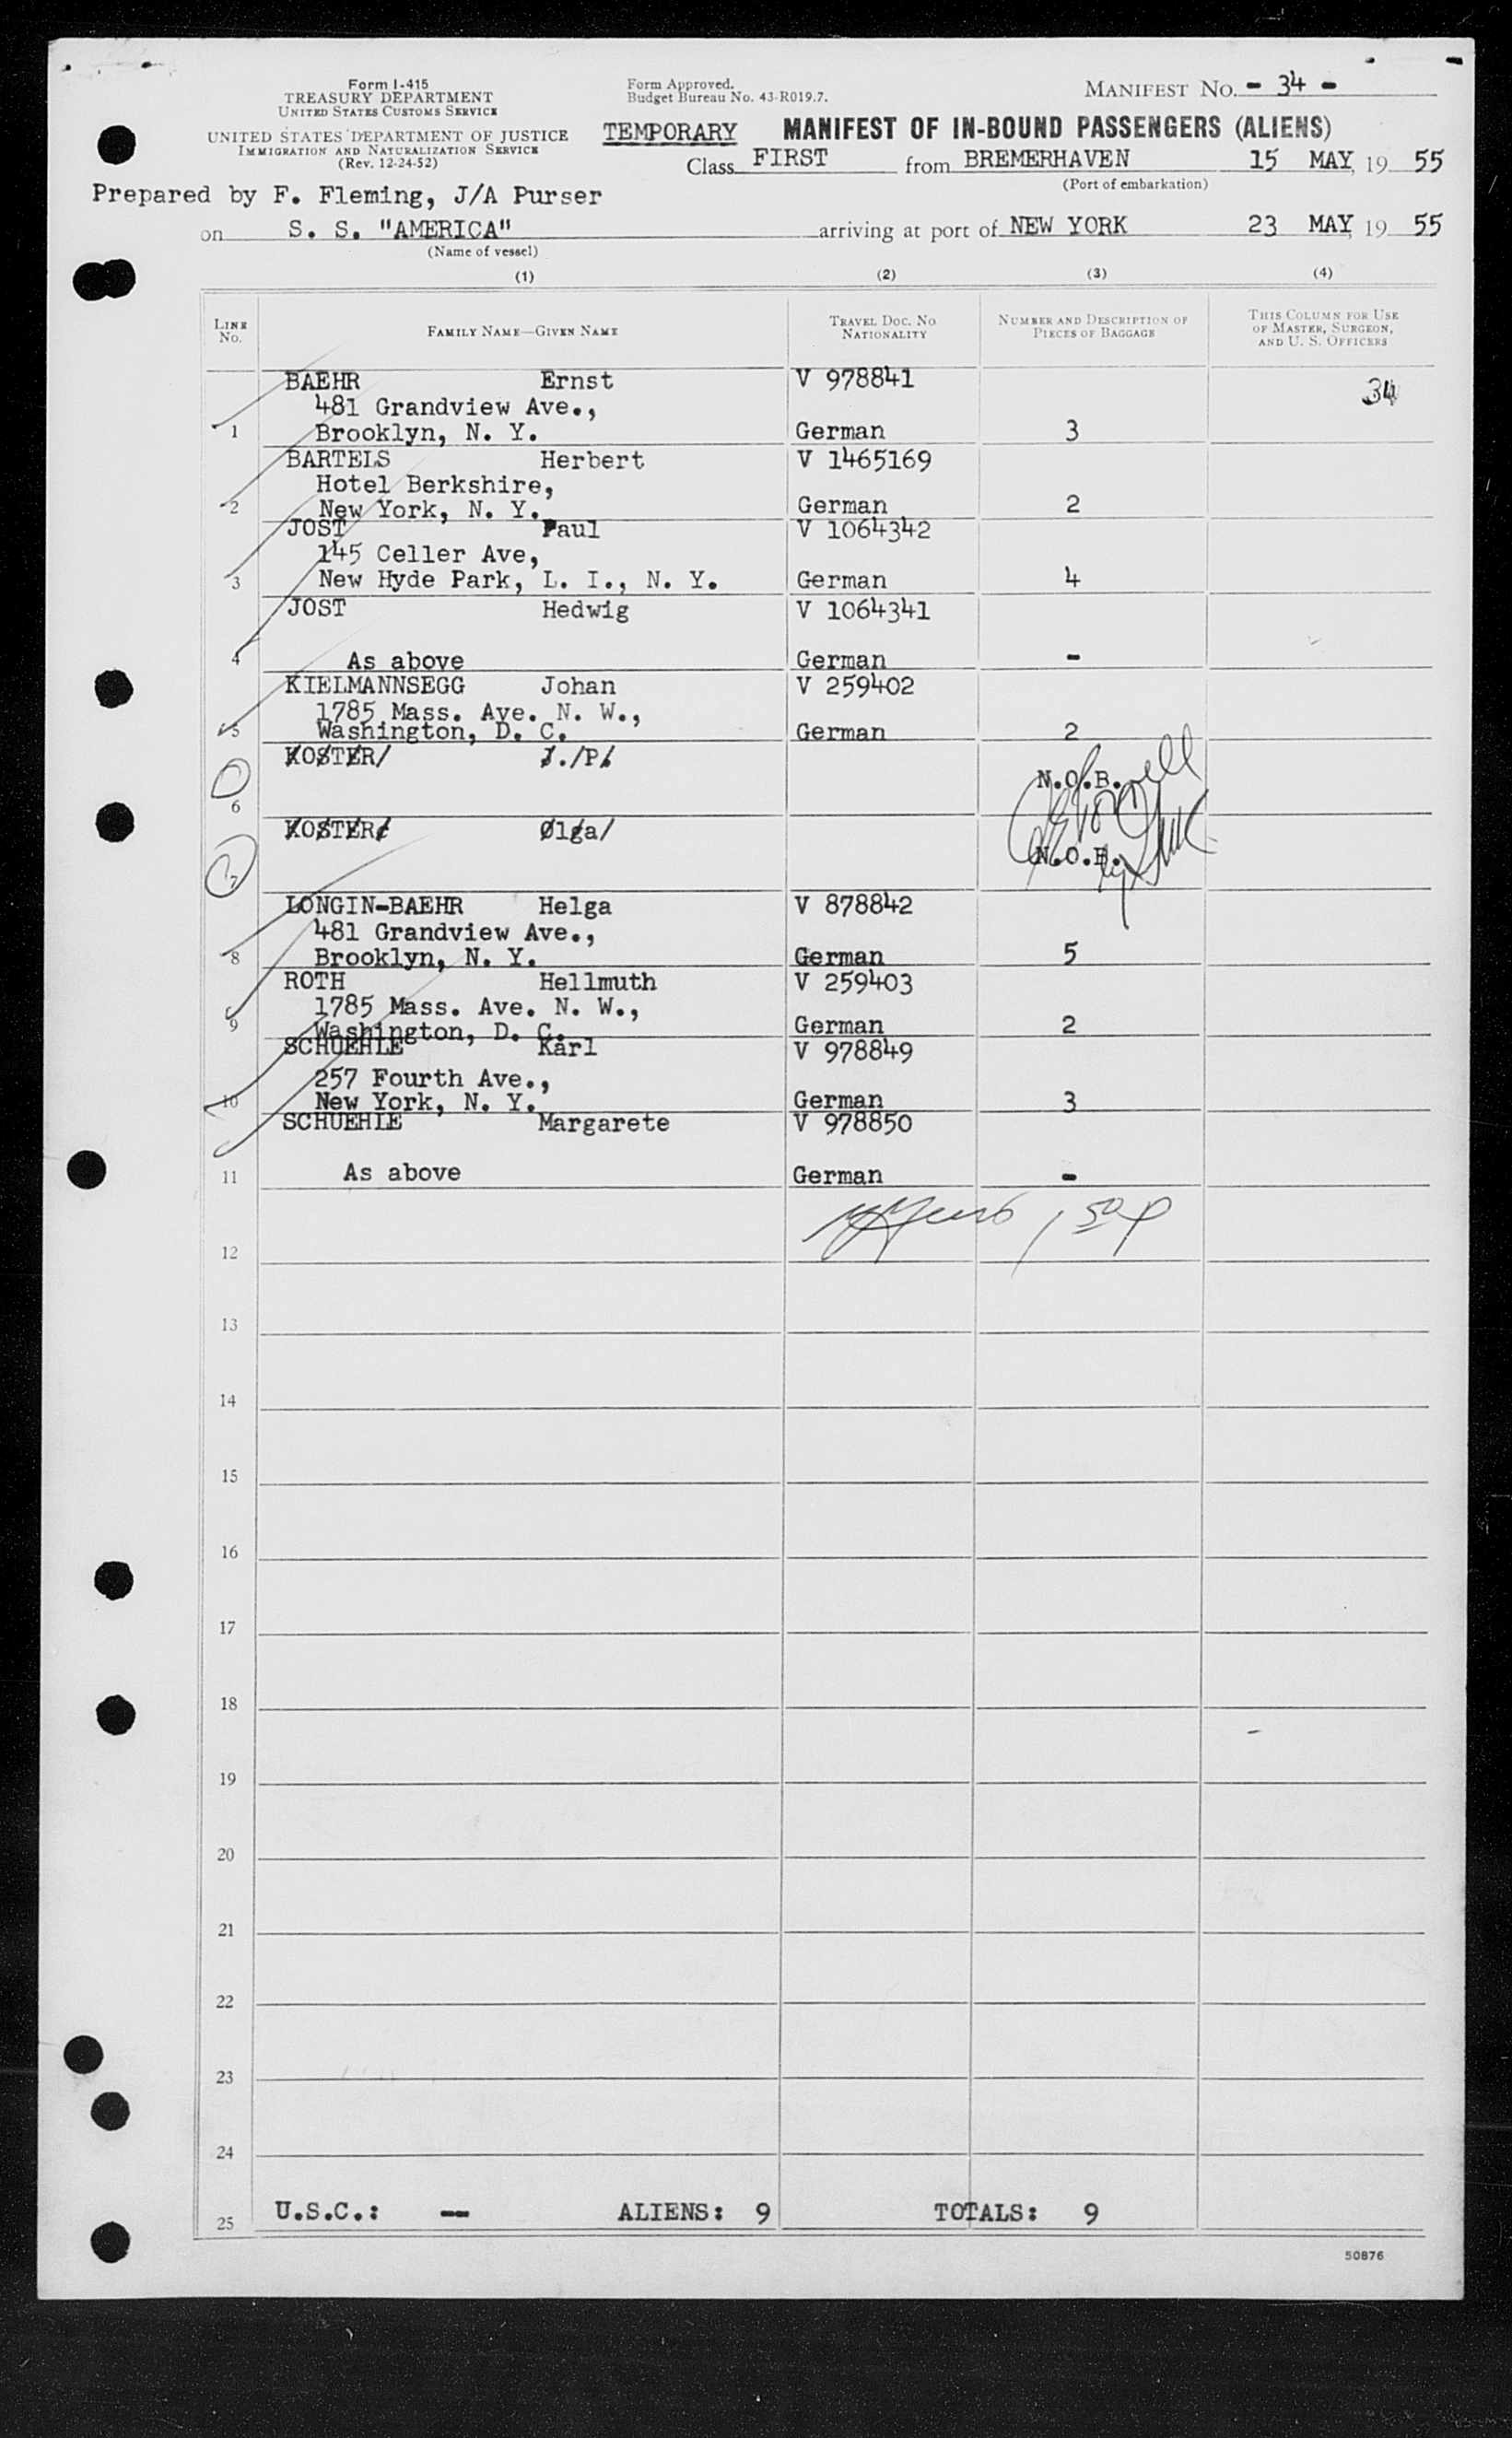 Form I-415
TREASURY DEPARTMENT
UNITED STATES CUSTOMS SERVICE
UNITED STATES DEPARTMENT OF JUSTICE
IMMIGRATION AND NATURALIZATION SERVICE
(Rev. 12-24-52)
Form Approved.
Budget Bureau No. 43-R019.7.
MANIFEST NO. - 34 -
TEMPORARY MANIFEST OF IN-BOUND PASSENGERS (ALIENS)
Class FIRST from BREMERHAVEN 15 MAY, 19 55
(Port of embarkation)
Prepared by F. Fleming, J/A Purser
on S. S. "AMERICA" arriving at port of NEW YORK 23 MAY 19 55
(Name of vessel)
(1) (2) (3) (4)
LINE No. FAMILY NAME—GIVEN NAME TRAVEL DOC. NO NATIONALITY NUMBER AND DESCRIPTION OF PIECES OF BAGGAGE THIS COLUMN FOR USE OF MASTER, SURGEON, AND U. S. OFFICERS
BAEHR Ernst V 978841 34
481 Grandview Ave.,
1 Brooklyn, N. Y. German 3
BARTELS Herbert V 1465169
Hotel Berkshire,
2 New York, N. Y. German 2
JOST Paul V 1064342
145 Celler Ave,
3 New Hyde Park, L. I., N. Y. German 4
JOST Hedwig V 1064341
4 As above German -
KIELMANNSEGG Johan V 259402
1785 Mass. Ave. N. W.,
5 Washington, D. C. German 2
KOSTER/ J./P/
N.O.B.
6
KOSTER Olga/
7 N.O.B.
LONGIN-BAEHR Helga V 878842
481 Grandview Ave.,
8 Brooklyn, N. Y. German 5
ROTH Hellmuth V 259403
1785 Mass. Ave. N. W.,
9 Washington, D. C. German 2
SCHUEHLE Karl V 978849
257 Fourth Ave.,
10 New York, N. Y. German 3
SCHUEHLE Margarete V 978850
11 As above German -
12
13
14
15
16
17
18
19
20
21
22
23
24
25 U.S.C.: -- ALIENS: 9 TOTALS: 9
50876